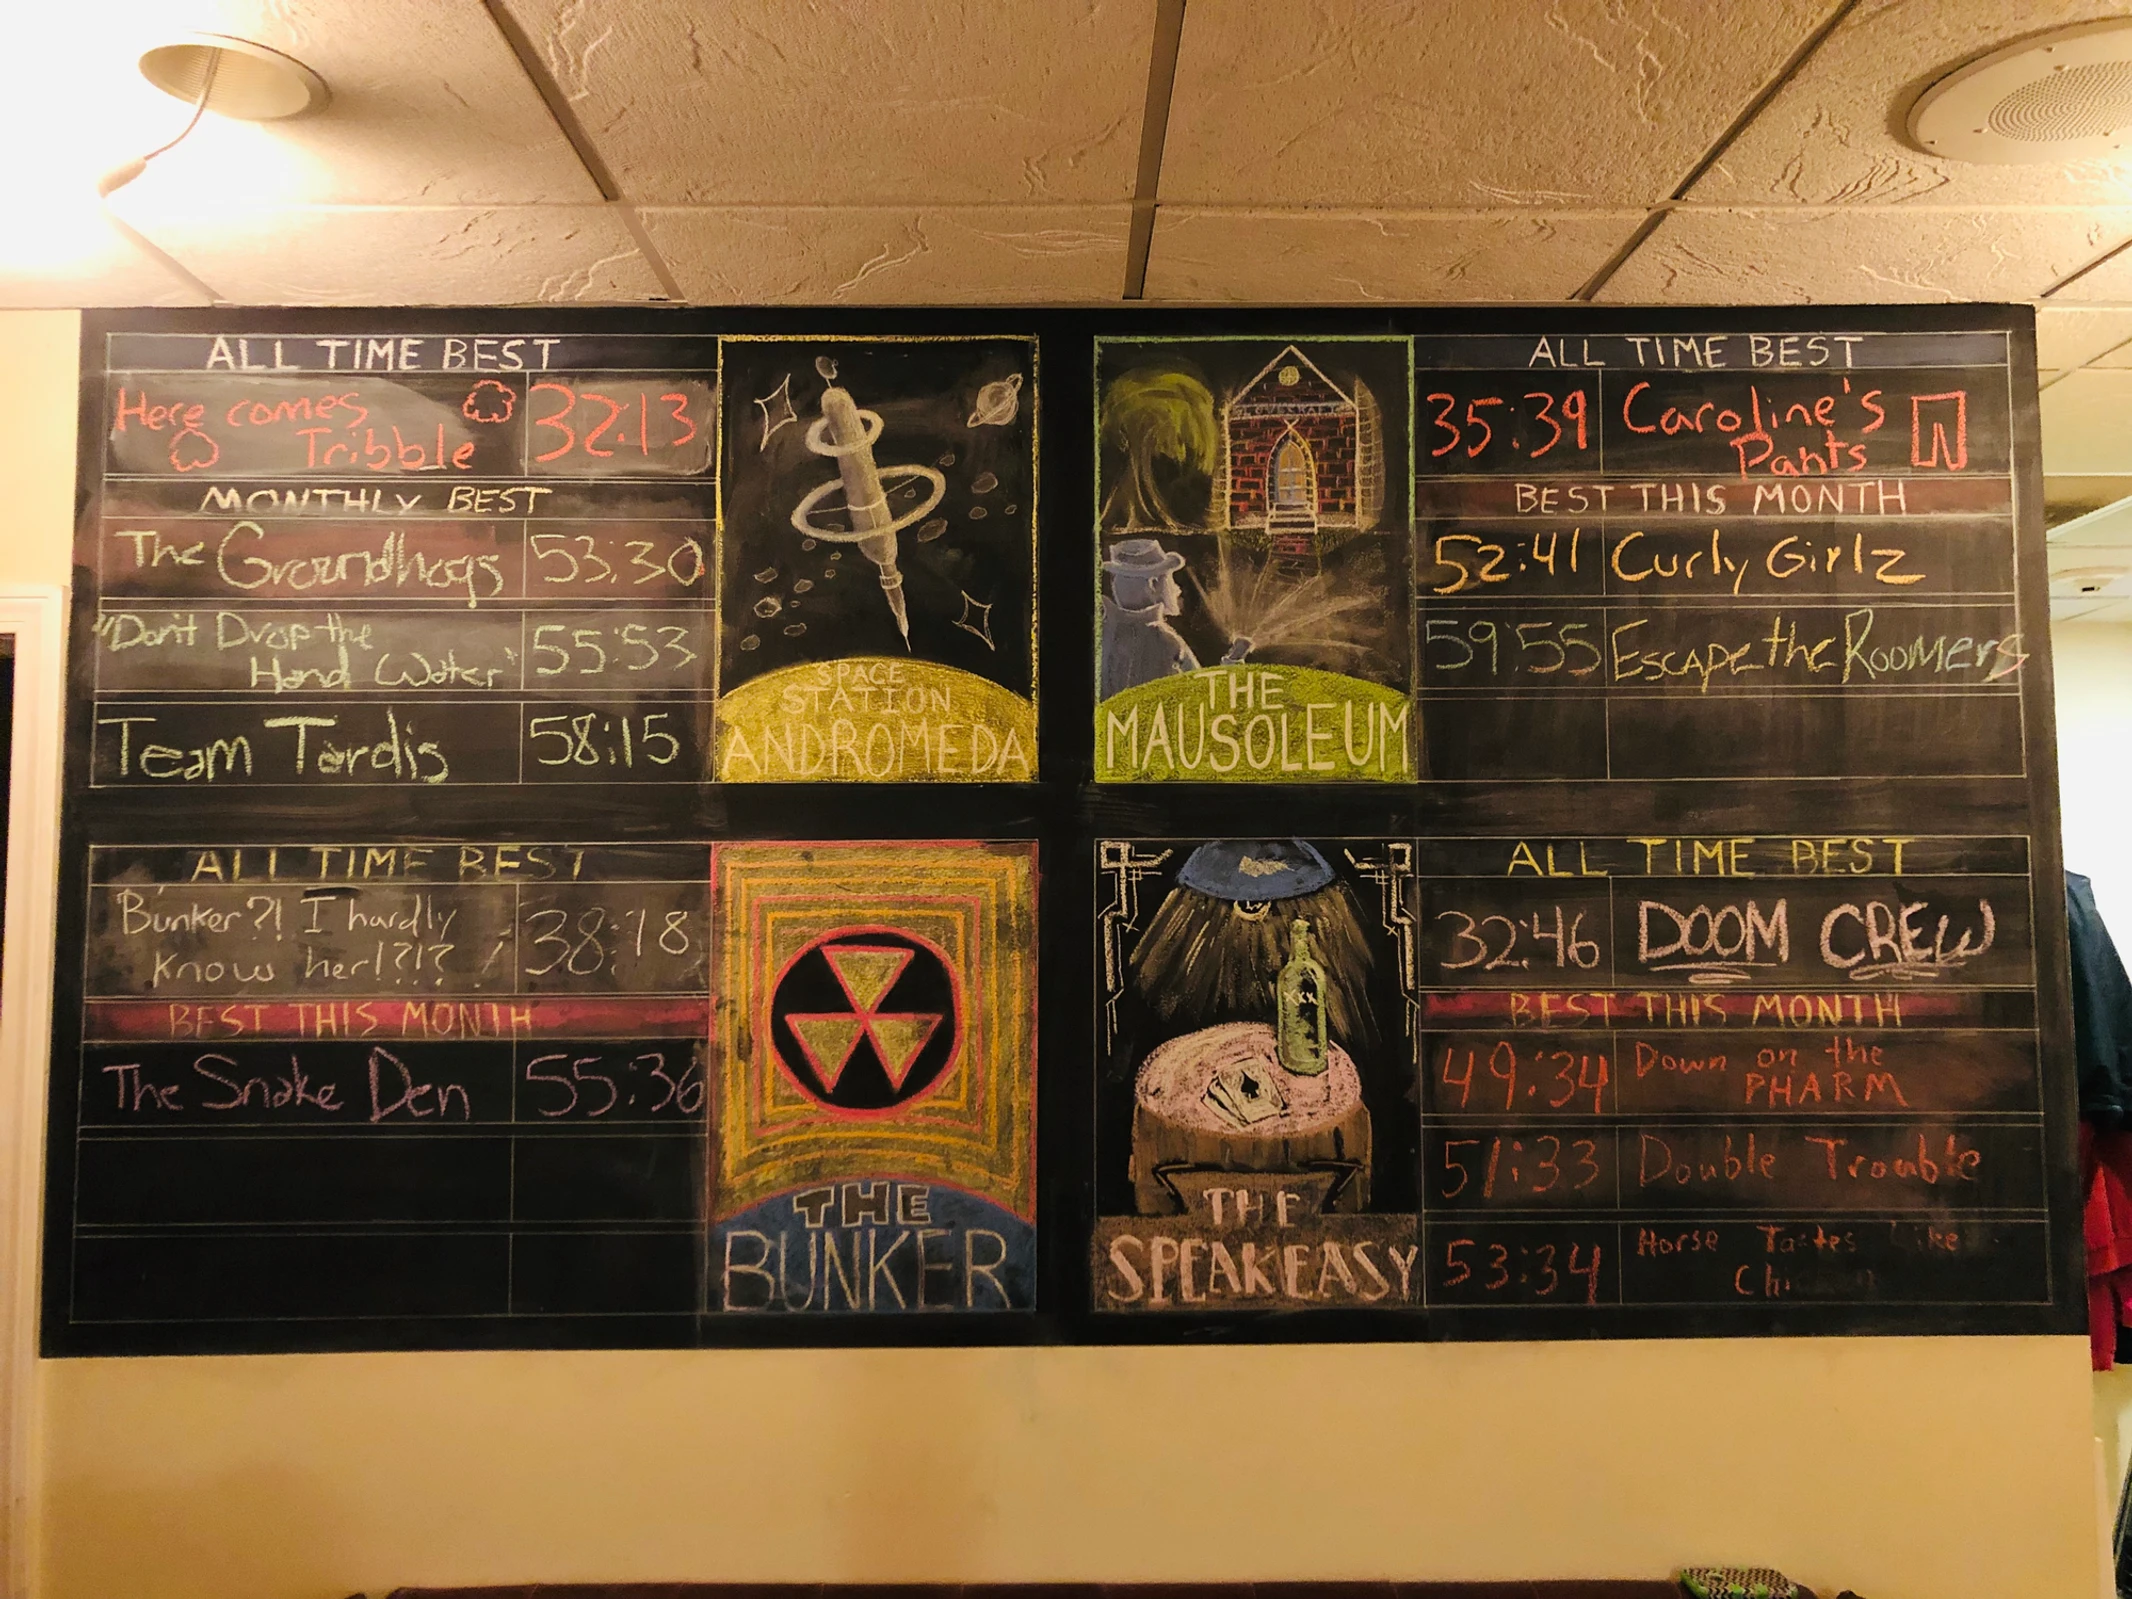 ALL TIME BEST
Here comes 32:13
Tribble
MONTHLY BEST
The Groundhogs 53:30
"Don't Drop the 55:53
Hand Water"
Team Tardis 58:15
SPACE
STATION
ANDROMEDA
ALL TIME BEST
35:39 Caroline's
Pants
BEST THIS MONTH
52:41 Curly Girlz
59:55 Escape the Roomers
THE
MAUSOLEUM
ALL TIME BEST
Bunker?! I hardly 38:18
Know her!?!?
BEST THIS MONTH
The Snake Den 55:36
THE
BUNKER
XXX
THE
SPEAKEASY
ALL TIME BEST
32:46 DOOM CREW
BEST THIS MONTH
49:34 Down on the
PHARM
51:33 Double Trouble
53:34 Horse Tastes like
Chicken